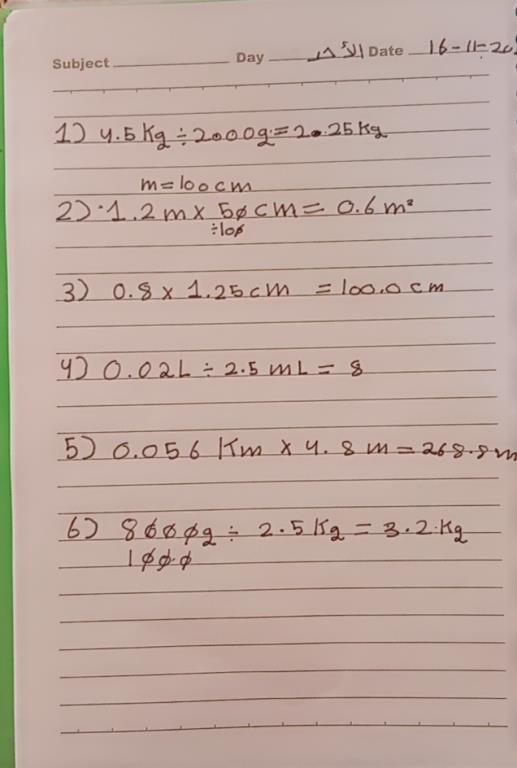 Subject Day الأحد Date 16-11-20
1) 4.5 Kg ÷ 2000g = 2.25 Kg
m = 100 cm
2) 1.2 m x 50 cm = 0.6 m²
÷100
3) 0.8 x 1.25 cm = 100.0 cm
4) 0.02L ÷ 2.5 mL = 8
5) 0.056 Km x 4.8 m = 268.8 m
6) 8000g ÷ 2.5 Kg = 3.2 Kg
1000